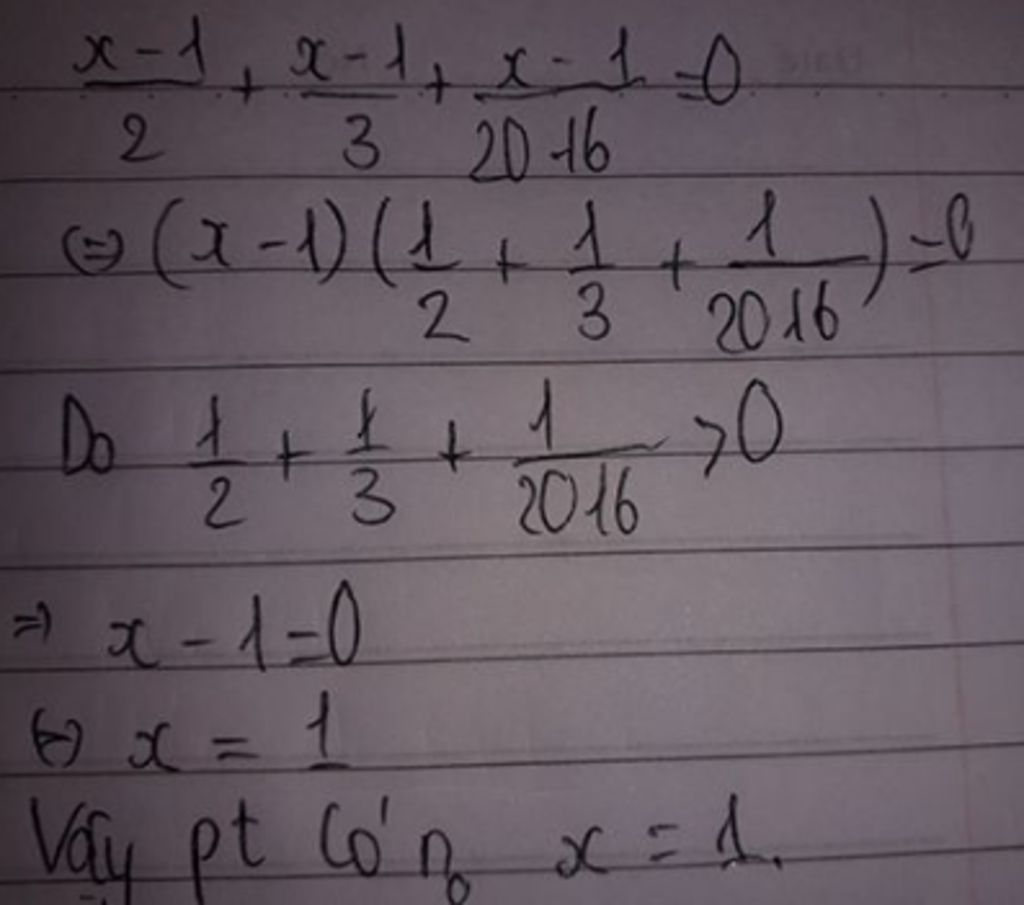 x-1/2 + x-1/3 + x-1/2016 = 0
⇔ (x-1)(1/2 + 1/3 + 1/2016) = 0
Do 1/2 + 1/3 + 1/2016 > 0
⇒ x - 1 = 0
⇔ x = 1
Vậy pt có no x = 1.